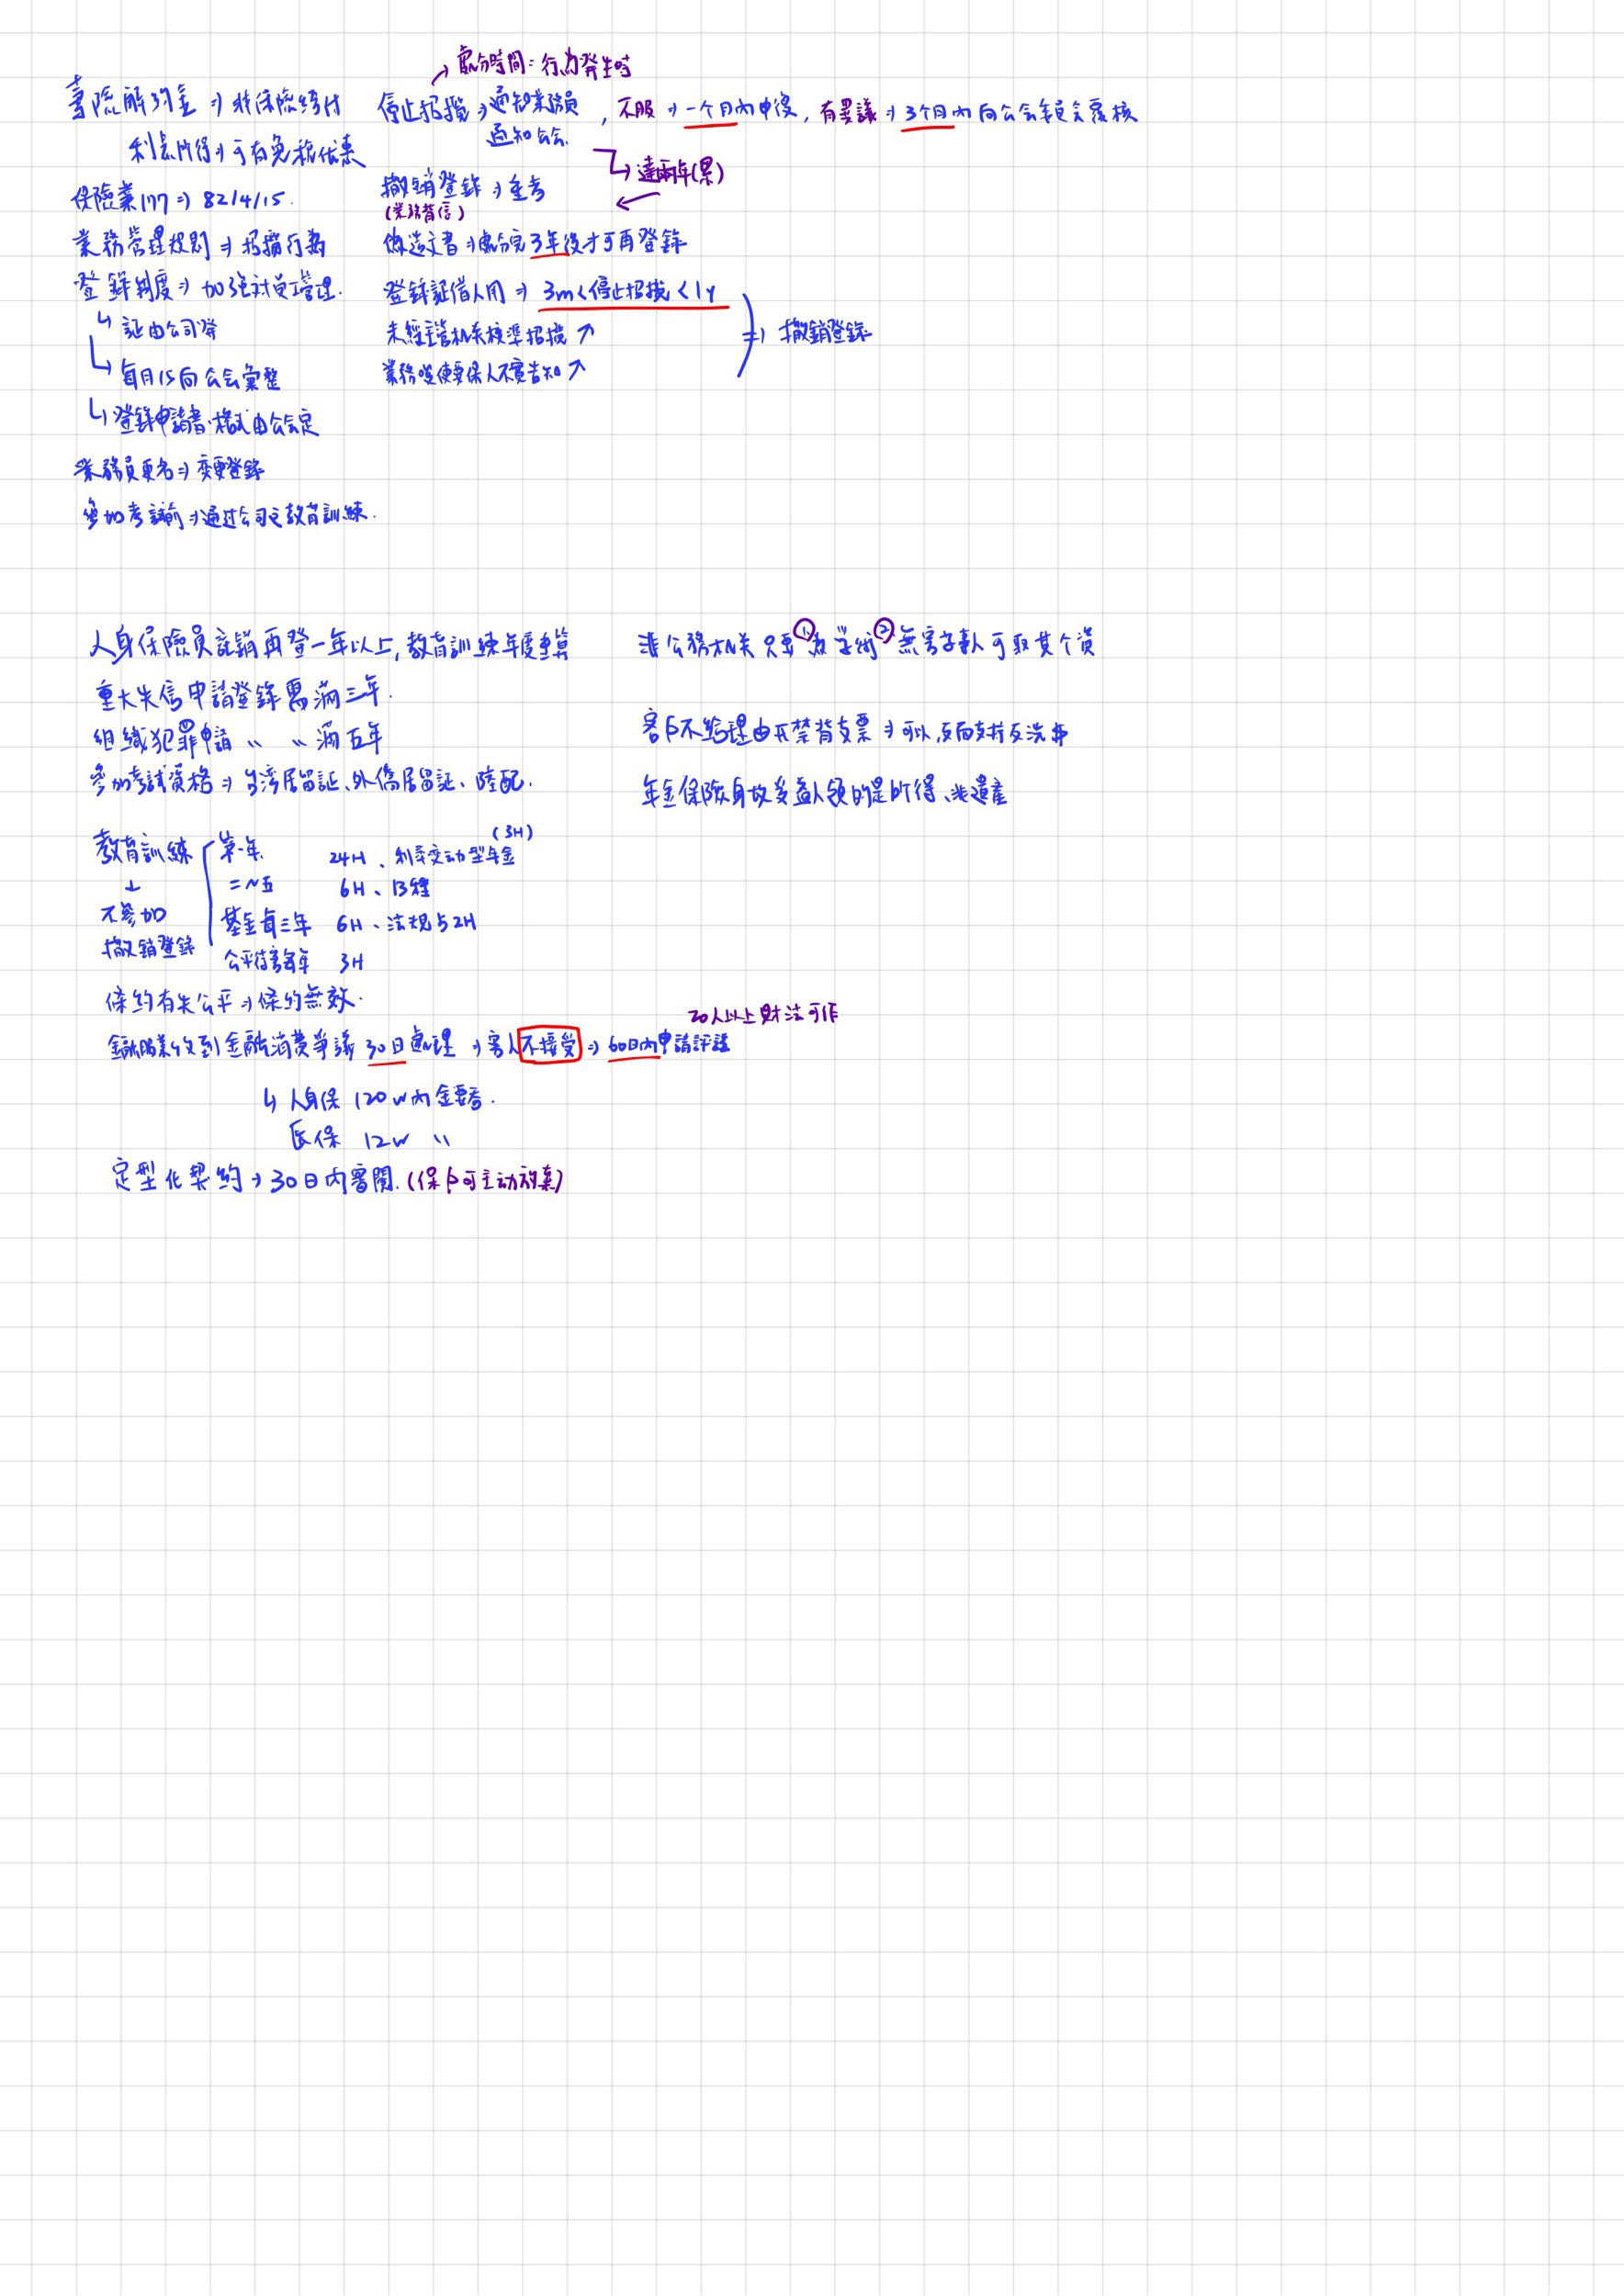 壽險解約金 ⇒ 非保險給付
利息所得 ⇒ 可有免稅优惠
保險業177 ⇒ 82/4/15.
業務管理規則 ⇒ 招攬行為
登錄制度 ⇒ 加強對員工管理.
↳ 証由公司發
↳ 每月15向公会彙整
↳ 登錄申請書格式由公会定
業務員更名 ⇒ 变更登錄
參加考試前 ⇒ 通过公司之教育訓練.
→ 處分時間 = 行為發生時
停止招攬 ⇒ 通知業務員 , 不服 ⇒ 一个月內申復, 有異議 ⇒ 3个月內向公会委員会覆核
通知公会.
↳ 達兩年(累)
撤銷登錄 ⇒ 重考 ←
(業務背信)
偽造文書 ⇒ 處分完3年後才可再登錄
登錄証借人用 ⇒ 3m < 停止招攬 < 1y
未經主管机关核準招攬 ↗ ⇒ 撤銷登錄
業務唆使要保人不實告知 ↗
人身保險員註銷再登一年以上, 教育訓練年度重算
重大失信申請登錄需滿三年.
組織犯罪申請 〃 〃 滿五年
參加考試資格 ⇒ 台湾居留証、外僑居留証、陸配.
教育訓練 第一年 24H、利率变动型年金 (3H)
↓ 二~五 6H、13
不參加 基金每三年 6H、法規占2H
撤銷登錄 公平待客每年 3H
條約有失公平 ⇒ 條約無效.
20人以上財法可作
金融服業收到金融消費爭議 30日處理 ⇒ 客人不接受 ⇒ 60日內申請評議
↳ 人身保 120w內金要吞.
医保 12w 〃
定型化契約 → 30日內審閱. (保戶可主动放棄)
非公務机关只要 ① 為學術 ② 無害當事人可取其个資
客戶不給理由开禁背支票 ⇒ 可以, 反而支持反洗
年金保險身故受益人領的是所得、非遺產